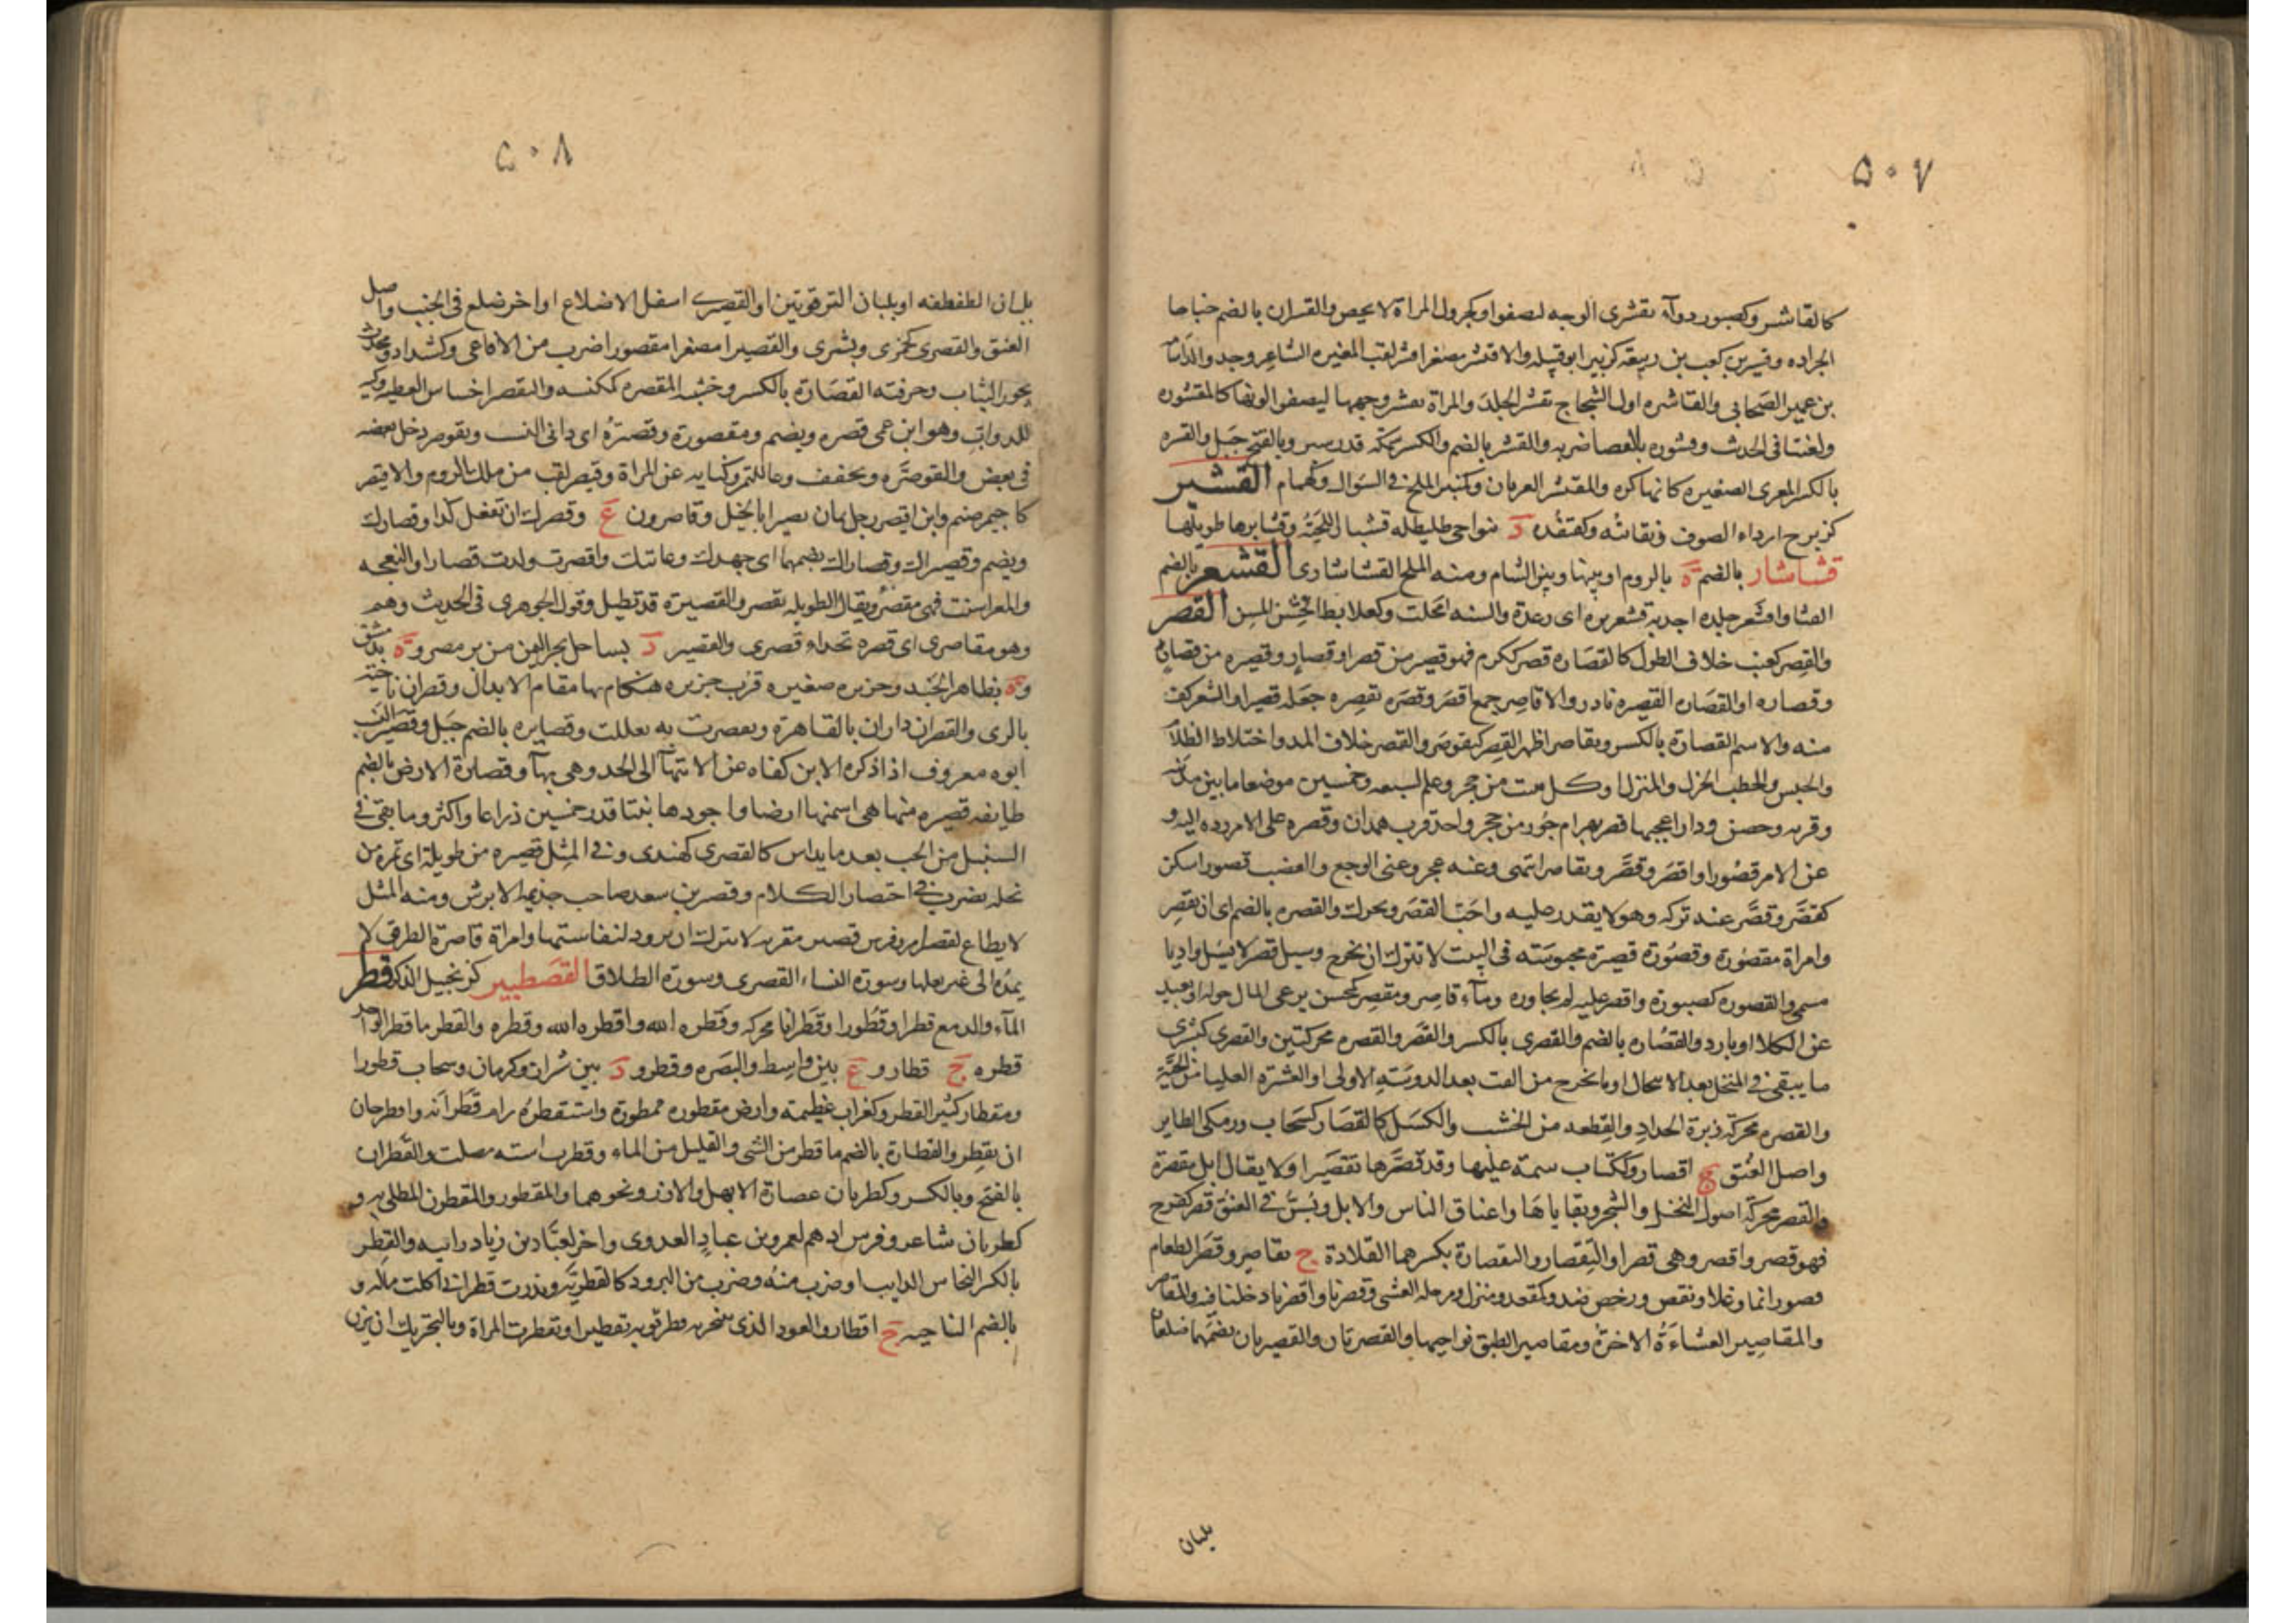 ۵۰۷
كالقاشر وكصبور دوآء تقشرى الوجه لصفوا وكجرول المراة لا تحيض والقسران بالضم جناحا
الجراده وقشير بن كعب بن ربيعة كزبير ابو قبيله والاقشر مصغرا قشر لقب المغيره الشاعر وجد والد اسامة
بن عمير الصحابى والقاشره اول الشجاج تقشر الجلد والمراة تقشر وجهها ليصفو الونها كالمقشوره
ولعنتا فى الحدث وقشوره بالعصا ضربه والقشر بالضم والكسر سمكه قدر سبر وبالفتح جبل والقسره
بالكسر المعزى الصغيره كانها كره والمقتشر العريان وكمنبر الملح فى السوال وكهمام القشبر
كزبرج ارداء الصوف ونفاثه وكقنفذه د بنواحى طليطله قشبار اللحية وقشابرها طويلها
قشاشار بالضم ة بالروم او بينها وبين الشام ومنه الملح القشاشارى القشعر بالضم
القثا واقشعر جلده اجدبة قشعريره اى رعدة والسنه امحلت وكعلابط الخشن المس القصر
والقصر كعنب خلاف الطول كالقصاره قصر ككرم فهو قصير من قصرا وقصار وقصيره من قصار
وقصاره او القصاره القصيره نادر والاقاصر جمع اقصر وقصره تقصره جعله قصيرا والشعر كف
منه والاسم القصارة بالكسر وتقاصر اظهر القصر كتقوصر والقصر خلاف المد واختلاط الظلام
والحبس والحطب الجزل والمنزل او كل بيت من حجر وعلم لسبعه وخمسين موضعا ما بين مدينه
وقريه وحصن ودار اعجبها قصر بهرام جور من حجر واحد قرب همدان وقصره على الامر رده اليه و
عن الامر قصورا واقصر وقصر وتقاصر انتهى وعنه عجز وعنى الوجع والغضب قصورا سكن
كقصر وقصر عنه تركه وهو لا يقدر عليه واحب القصر ويحرك والقصره بالضم اى ان تقصر
وامراة مقصوره وقصوره قصيرة محبوسته فى البيت لا تترك ان تخرج وسيل قصر لا يسيل واديا
مسمى والقصوره كصبورة واقصر عليه لم يجاوره ومآء قاصر ومقصر كمحسن يرعى المال حوله او بعيد
عن الكلا او بارد والقصاره بالضم والقصرى بالكسر والقصر والقصره محركتين والقصرى كبشرى
ما يبقى فى المنخل بعد الانتحال او ما يخرج من القت بعد الدوسته الاولى او القشرة العليا من الحبة
والقصره محركة زبرة الحداد والقطعه من الخشب والكسل كالقصار كسحاب ورمكى الطاير
واصل العنق ج اقصار وككتاب سمة عليها وقد قصرها تقصيرا ولا يقال ابل مقصرة
والقصر محركة اصول النخل والشجر وبقاياها واعناق الناس والابل ويبس فى العنق قصر كفرح
فهو قصر واقصر وهى قصرا والتقصار والتقصارة بكسرهما القلادة ج تقاصير وقصر الطعام
قصورا نما وغلا ونقص ورخص ضد وكمقعد ومنزل ومرحله العشى وقصرنا واقصرنا دخلنا فيه والمقاصر
والمقاصير العشاءة الاخرة ومقاصير الطبق نواحيها والقصرتان والقصيريان بضمهما ضلعان
يليان
۵۰۸
يليان الطفطفه او يليان الترقوتين او القصيرى اسفل الاضلاع او اخر ضلع فى الجنب واصل
العنق والقصرى كجمزى وبشرى والقصيرا مصغرا مقصورا ضرب من الافاعى وكشداد ومحدث
محور الثياب وحرفته القصارة بالكسر وخشبه المقصره كمكنسه والتقصر اخساس العطيه وكيه
للدواب وهو ابن عمى قصره ويضم ومقصورة وقصرة اى دانى النسب وتقوصر دخل بعضه
فى بعض والقوصره ويخفف وعا للتمر وكنايه عن المراة وقيصر لقب من ملك الروم والاقيصر
كاحيمر صنم وابن اقيصر رجل كان بصيرا بالخيل وقاصرون ع وقصرك ان تفعل كذا وقصارك
ويضم وقصيراك وقصاراك بضمهما اى جهدك وغايتك واقصرت ولدت قصارا والنعجه
والمعز اسنت فهى مقصر ويقال الطويله تقصر والقصيرة قد تطيل وقول الجوهرى فى الحديث وهم
وهو مقاصرى اى قصره بحذاء قصرى والقصير د بساحل بحر اليمن من بر مصر وة بدمشق
وة بظاهر الجند وجزيره صغيره قرب جزيره هنكام بها مقام الابدال وقصران ناحيته
بالرى والقصران داران بالقاهرة وتعصرت به تعللت وقصايره بالضم جبل وقصير النسب
ابوه معروف اذا ذكره الابن كفاه عن الانتماآ الى الجد وهى بهآ وقصارة الارض بالضم
طايفه قصيره منها هى اسمنها ارضا واجودها نبتا قدر خمسين ذراعا واكثر وما بقى فى
السنبل من الحب بعد ما يداس كالقصرى كهندى وفى المثل قصيره من طويلة اى تمره من
نخله يضرب فى اختصار الكلام وقصير بن سعد صاحب جذيمه الابرش ومنه المثل
لا يطاع لقصير امر وفرس قصير مقربه لا تترك ان ترود لنفاستها وامراة قاصرة الطرف لا
تمده الى غير بعلها وسورة النساء القصرى وسورة الطلاق القصطبير كزنجبيل الذكر قطر
المآء والدمع قطرا وقطورا وقطرانا محركه وقطره الله واقطره الله وقطره والقطر ما قطر الواحد
قطره ج قطار وع بين واسط والبصره وقطرو د بين شران وكرمان وسحاب قطورا
ومقطار كثير القطر وكغراب عظيمته وارض مقطوره ممطورة واستقطره رام قطرانه واقطر حان
ان يقطر والقطارة بالضم ما قطر من الشى والقليل من الماء وقطرب استه مصلت والقطران
بالفتح وبالكسر وكظربان عصارة الابهل والارز ونحوهما والمقطور والمقطون المطلى به و
كظربان شاعر وفرس ادهم لعمرو بن عباد العدوى واخر لعباد بن زياد ابيه والقطر
بالكسر النحاس الذايب او ضرب منه وضرب من البرود كالقطرية وبذرت قطران اكلت ماله و
بالضم الناحيه ج اقطار والعود الذى يتبخر به وقطر ثوبه تقطيرا وتقطرت المراة وبالتحريك ان يزن